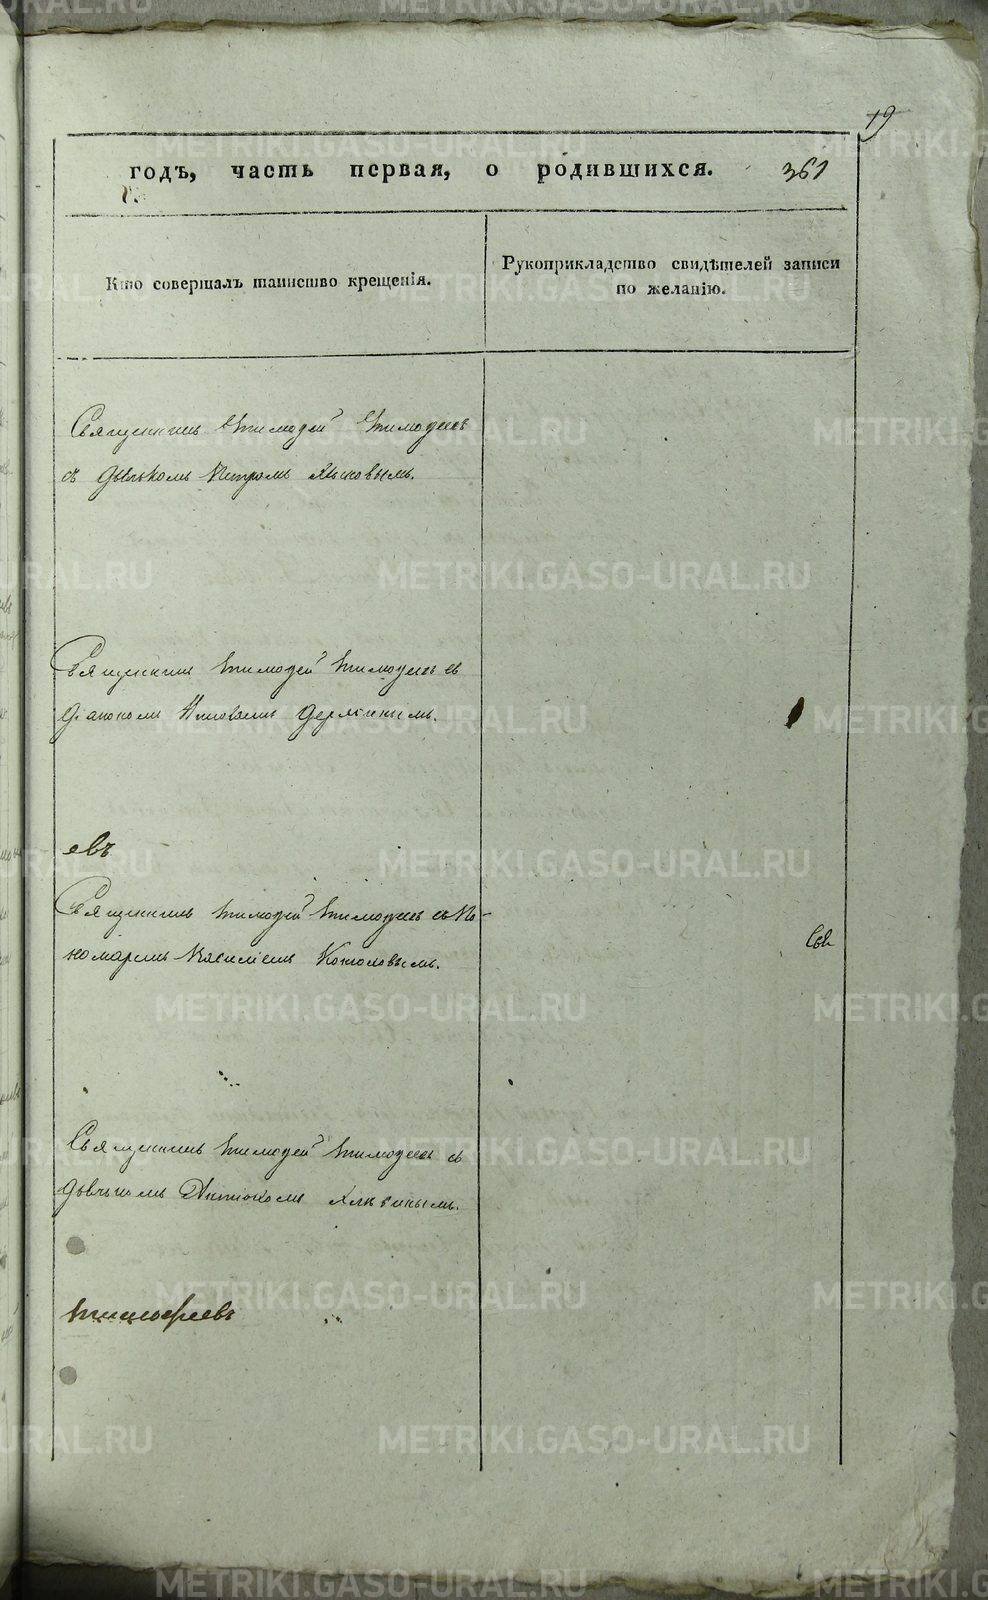 19
годъ, часть первая, о родившихся. 361
Кто совершалъ таинство крещенія.
Рукоприкладство свидѣтелей записи
по желанію.
Священникъ Тимофей Тимофеевъ
съ дьячкомъ Петромъ
Священникъ Тимофей Тимофеевъ съ
діакономъ
евъ
Священникъ Тимофей Тимофеевъ съ по-
номаремъ Василіемъ
Священникъ Тимофей Тимофеевъ съ
дьячкомъ
Тимофеевъ
METRIKI.GASO-URAL.RU